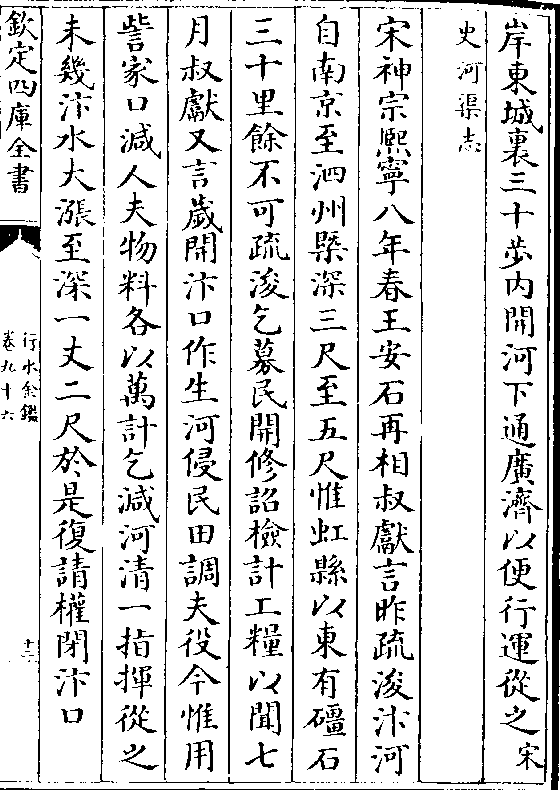 岸東城裏三十步内開河下通廣濟以便行運從之宋
史河渠志
宋神宗熙寧八年春王安石再相叔獻言昨疏浚汴河
自南京至泗州㮣深三尺至五尺惟虹縣以東有礓石
三十里餘不可疏浚乞募民開修詔檢計工糧以聞七
月叔獻又言歲開汴口作生河侵民田調夫役今惟用
訾家口減人夫物料各以萬計乞減河清一指揮從之
未幾汴水大漲至深一丈二尺於是復請權閉汴口
欽定四庫全書
行水金鑑
卷九十六